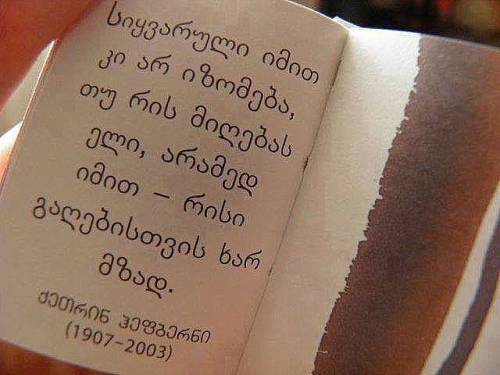 სიყვარული იმით
კი არ იზომება,
თუ რის მიღებას
ელი, არამედ
იმით – რისი
გაღებისთვის ხარ
მზად.
ქეთრინ ჰეფბერნი
(1907-2003)